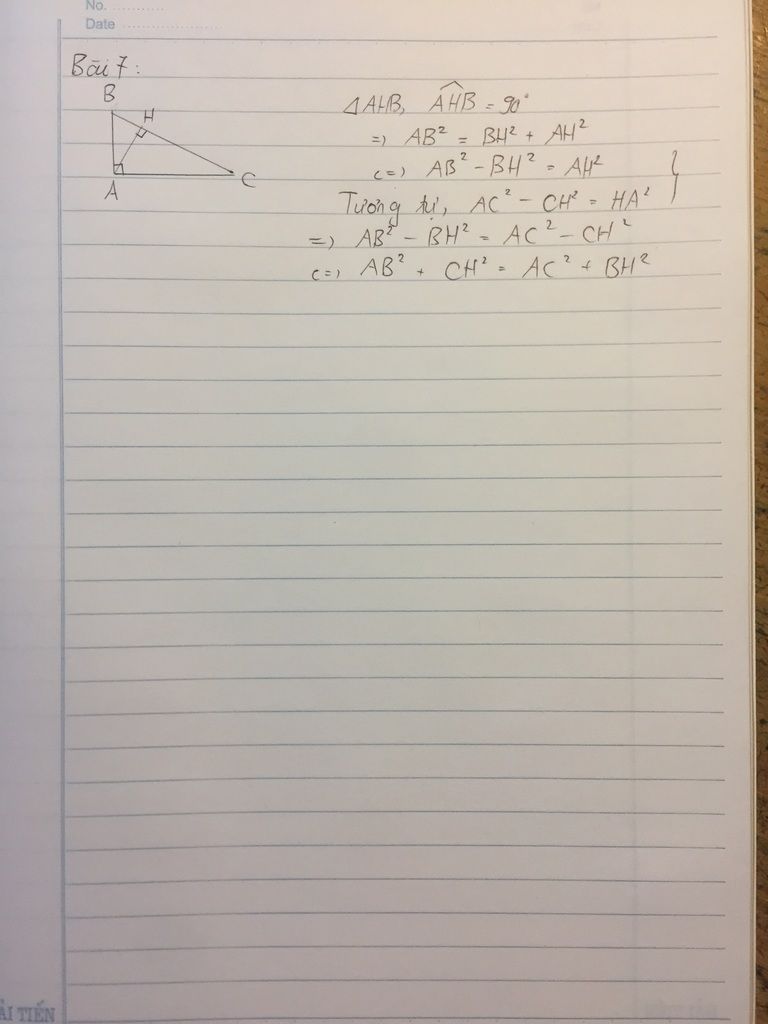 No. ............
Date ........................
Bài 7:
B
H
A
C
ΔAHB, \widehat{AHB} = 90°
=> AB² = BH² + AH²
<=> AB² - BH² = AH²
Tương tự, AC² - CH² = HA² }
=> AB² - BH² = AC² - CH²
<=> AB² + CH² = AC² + BH²
ẢI TIẾN